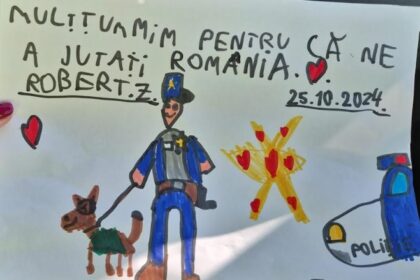 MULȚȚUMMIM PENTRU CĂ NE
A JUTAȚI ROMANIA.
ROBERT.Z. 25.10.2024